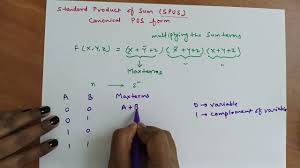 Standard Product of Sum (SPOS)
Canonical POS form
multiplying the Sum terms
F(x,y,z) = (x+ȳ+z)(x̄+y+z)(x+y+z)
Maxterms
n → 2ⁿ
A B Maxterms
0 0 A+B
0 1
1 0
1 1
0 → variable
1 → complement of variable